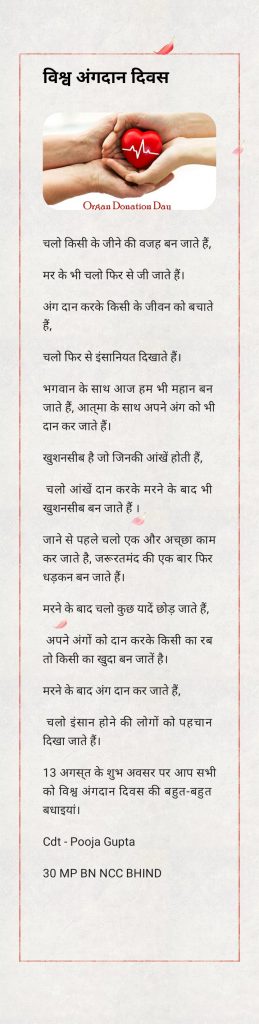 विश्व अंगदान दिवस
Organ Donation Day
चलो किसी के जीने की वजह बन जाते हैं,
मर के भी चलो फिर से जी जाते हैं।
अंग दान करके किसी के जीवन को बचाते
हैं,
चलो फिर से इंसानियत दिखाते हैं।
भगवान के साथ आज हम भी महान बन
जाते हैं, आत्मा के साथ अपने अंग को भी
दान कर जाते हैं।
खुशनसीब है जो जिनकी आंखें होती हैं,
चलो आंखें दान करके मरने के बाद भी
खुशनसीब बन जाते हैं ।
जाने से पहले चलो एक और अच्छा काम
कर जाते है, जरूरतमंद की एक बार फिर
धड़कन बन जाते हैं।
मरने के बाद चलो कुछ यादें छोड़ जाते हैं,
अपने अंगों को दान करके किसी का रब
तो किसी का खुदा बन जातें है।
मरने के बाद अंग दान कर जाते हैं,
चलो इंसान होने की लोगों को पहचान
दिखा जाते हैं।
13 अगस्त के शुभ अवसर पर आप सभी
को विश्व अंगदान दिवस की बहुत-बहुत
बधाइयां।
Cdt - Pooja Gupta
30 MP BN NCC BHIND